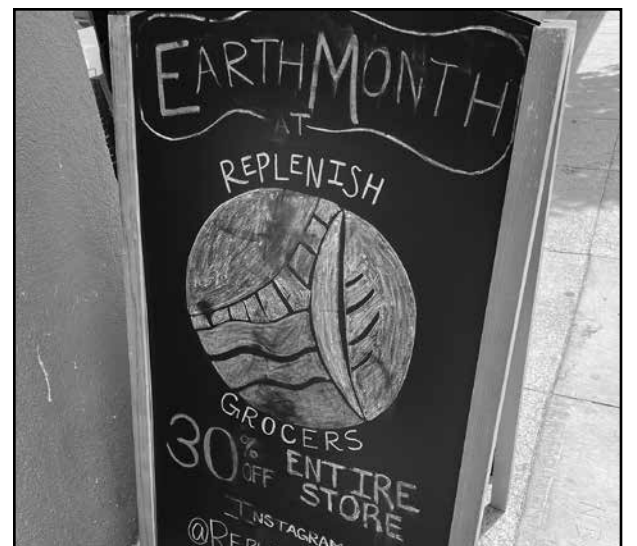 EARTH MONTH
AT
REPLENISH
GROCERS
30% OFF ENTIRE
STORE
INSTAGRAM